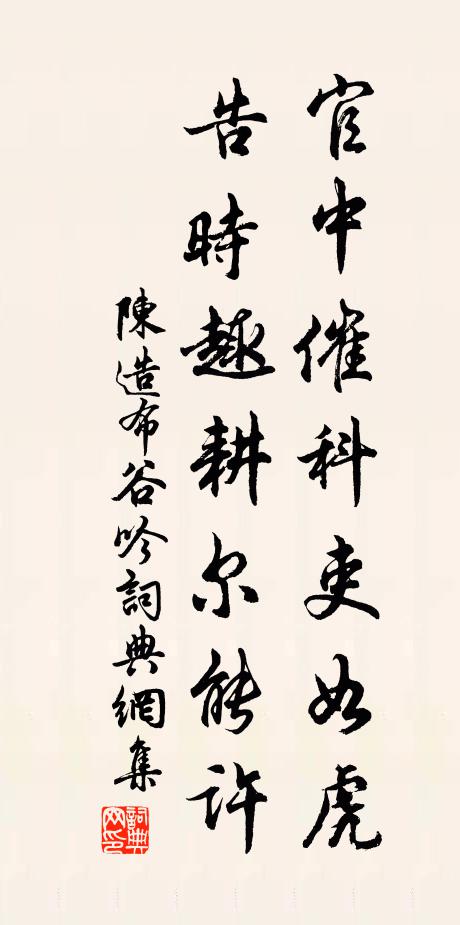 官中催科吏如虎
告時趣耕尔能許
陳造布谷吟詞典網集
詞典網印